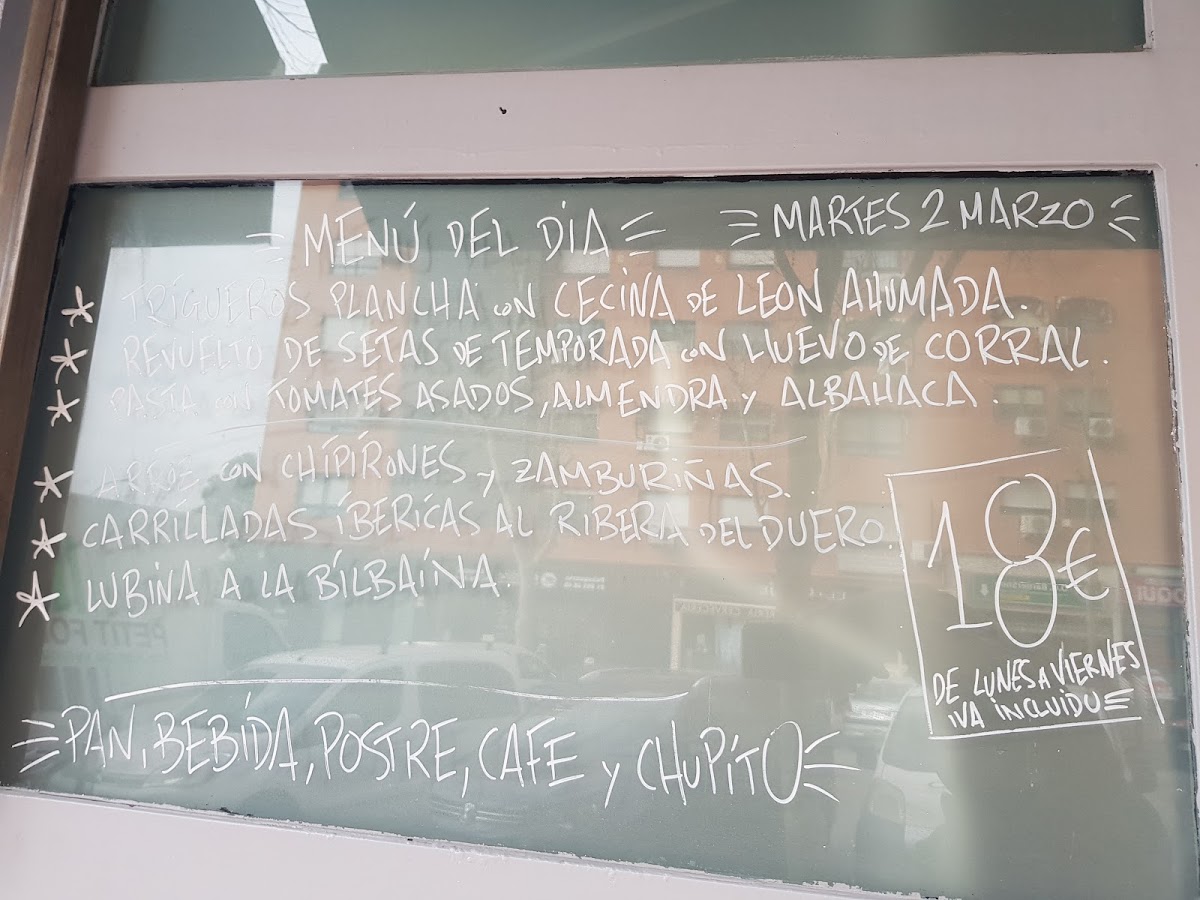 MENÚ DEL DIA
MARTES 2 MARZO
* TRIGUEROS PLANCHA CON CECINA DE LEON AHUMADA.
* REVUELTO DE SETAS DE TEMPORADA CON HUEVO DE CORRAL.
* PASTA CON TOMATES ASADOS, ALMENDRA Y ALBAHACA.
* ARROZ CON CHIPIRONES Y ZAMBURIÑAS.
* CARRILLADAS IBERICAS AL RIBERA DEL DUERO.
* LUBINA A LA BILBAÍNA.
18€
DE LUNES A VIERNES
IVA INCLUIDO
PAN, BEBIDA, POSTRE, CAFE Y CHUPITO
PETIT FO